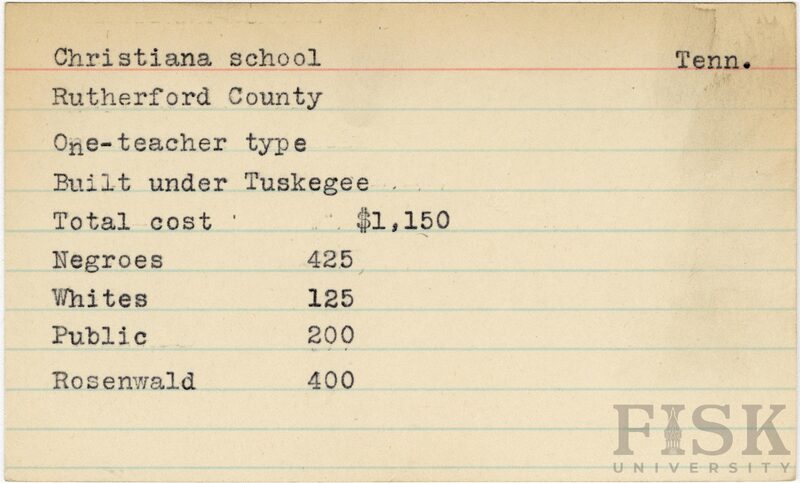 Christiana school Tenn.
Rutherford County
One-teacher type
Built under Tuskegee
Total cost $1,150
Negroes 425
Whites 125
Public 200
Rosenwald 400
FISK
UNIVERSITY